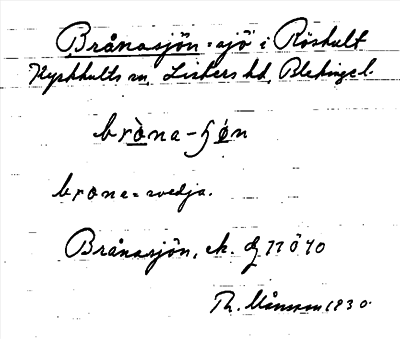 Brånasjön = sjö i Röshult
Kyrkhults sn, Listers hd, Blekinge l.
bròna-ʃón
brone = svedja.
Brånasjön, ek. 77Ö40
Th. Månsson 1930.